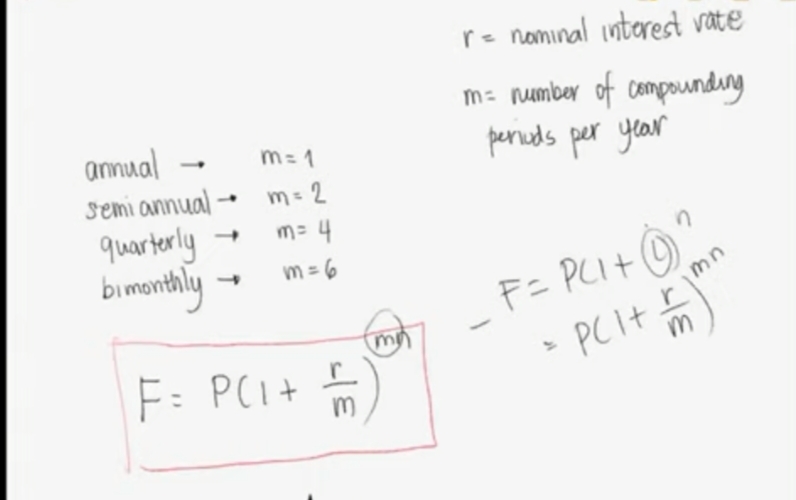 r = nominal interest rate
m = number of compounding
periods per year
annual → m = 1
semi annual → m = 2
quarterly → m = 4
bimonthly → m = 6
F = P(1 + i)^n
= P(1 + r/m)^mn
F = P(1 + r/m)^mn